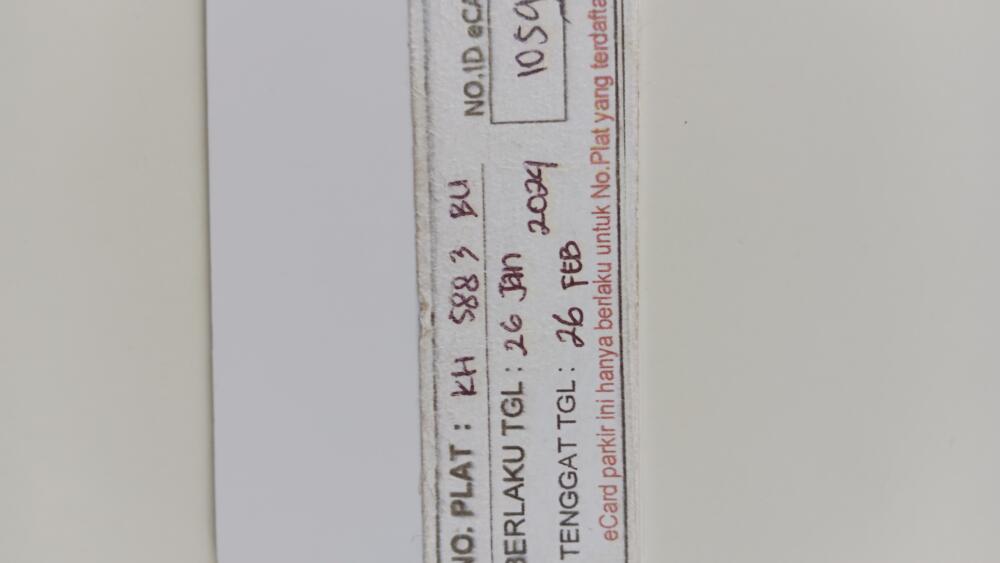 NO. PLAT : KH 5883 BU
NO.ID eCA
BERLAKU TGL : 26 Jan 2024
TENGGAT TGL : 26 FEB
1059
eCard parkir ini hanya berlaku untuk No.Plat yang terdafta